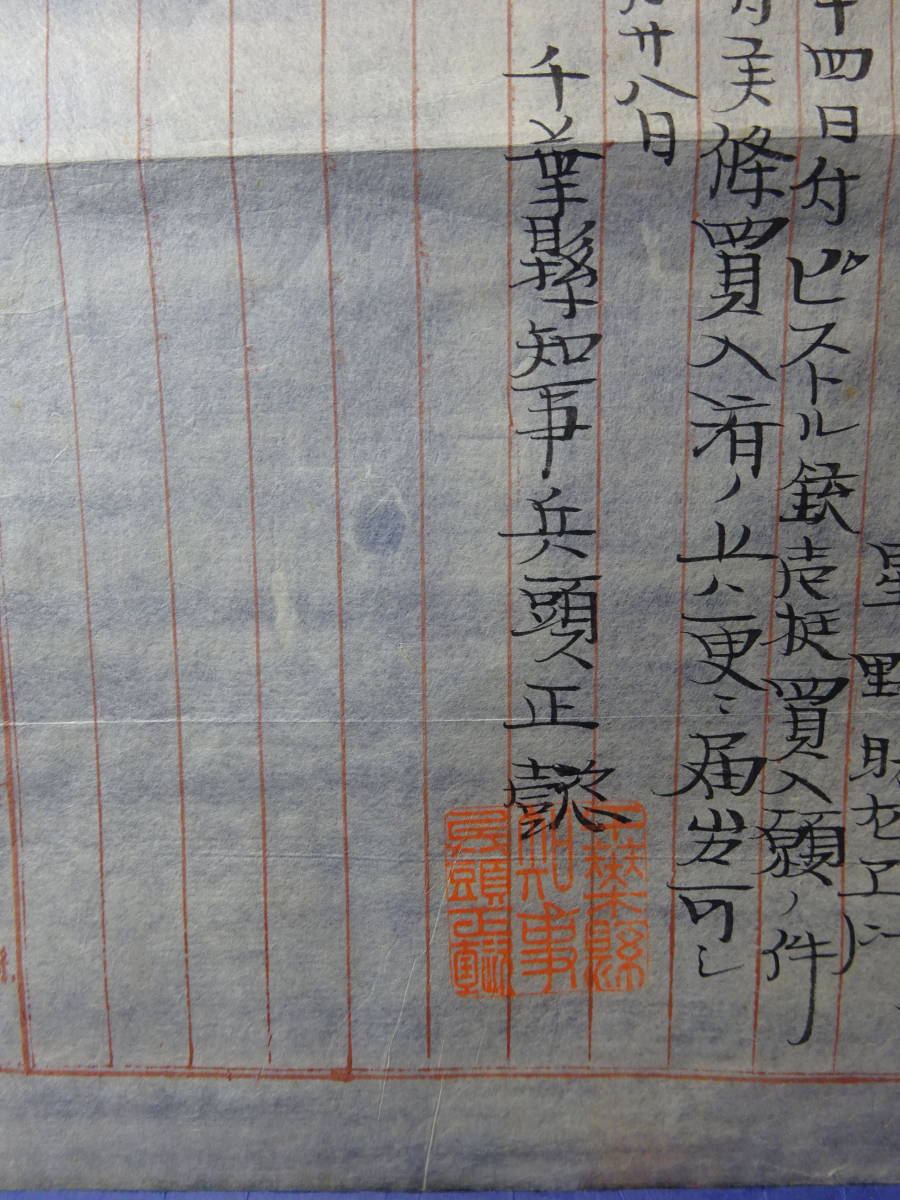 星野
十四日付ピストル銃壱挺買入願ノ件
候條買入済ノ上ハ更ニ届出可シ
廿八日
千葉縣知事兵頭正懿
千葉縣
知事
兵頭正懿